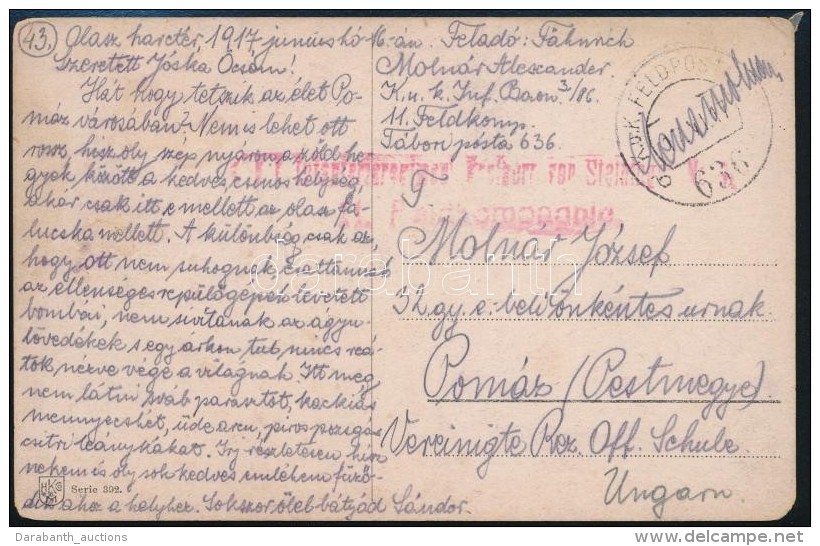 43.
Olasz harctér, 1917 junius hó 16.-án.
Szeretett Jóska Öcsém!
Hát hogy tetszik az élet Po-
máz városában? Nem is lehet ott
rossz, hisz oly szép nyáron a zöld he-
gyek között a kedves csinos helység,
akár csak itt e mellett az olasz fa-
lucska mellett. A különbség csak az,
hogy ott nem suhognak, csattannak
az ellenséges repülőgépek levetett
bombái, nem sivítanak az ágyu-
lövedékek s egy árkon tul, nincs reá-
tok nézve vége a világnak. Itt meg
nem látni sváb parasztot, kackiás
mennyecskét, üde arcu, pirospozsgás
csitri leánykákat. Irj részletesen hisz
nekem is oly sok kedves emlékem fűző-
dik ahoz a helyhez. Sokszor ölel bátyád Sándor.
Feladó: Fähnrich
Molnár Alexander.
K.u.k. Inf. Baon 3/86.
11. Feldkomp.
Tábori pósta 636.
K.u.K. FELDPOST
636
Freiherr von
Feldkompagnie
T.
Molnár József
32 gy. e.-beli önkéntes urnak
Pomáz (Pestmegye)
Vereinigte Rez. Off. Schule.
Ungarn
HKC
Serie 392.
darabanth
Darabanth_auctions
http://www.delcampe.net